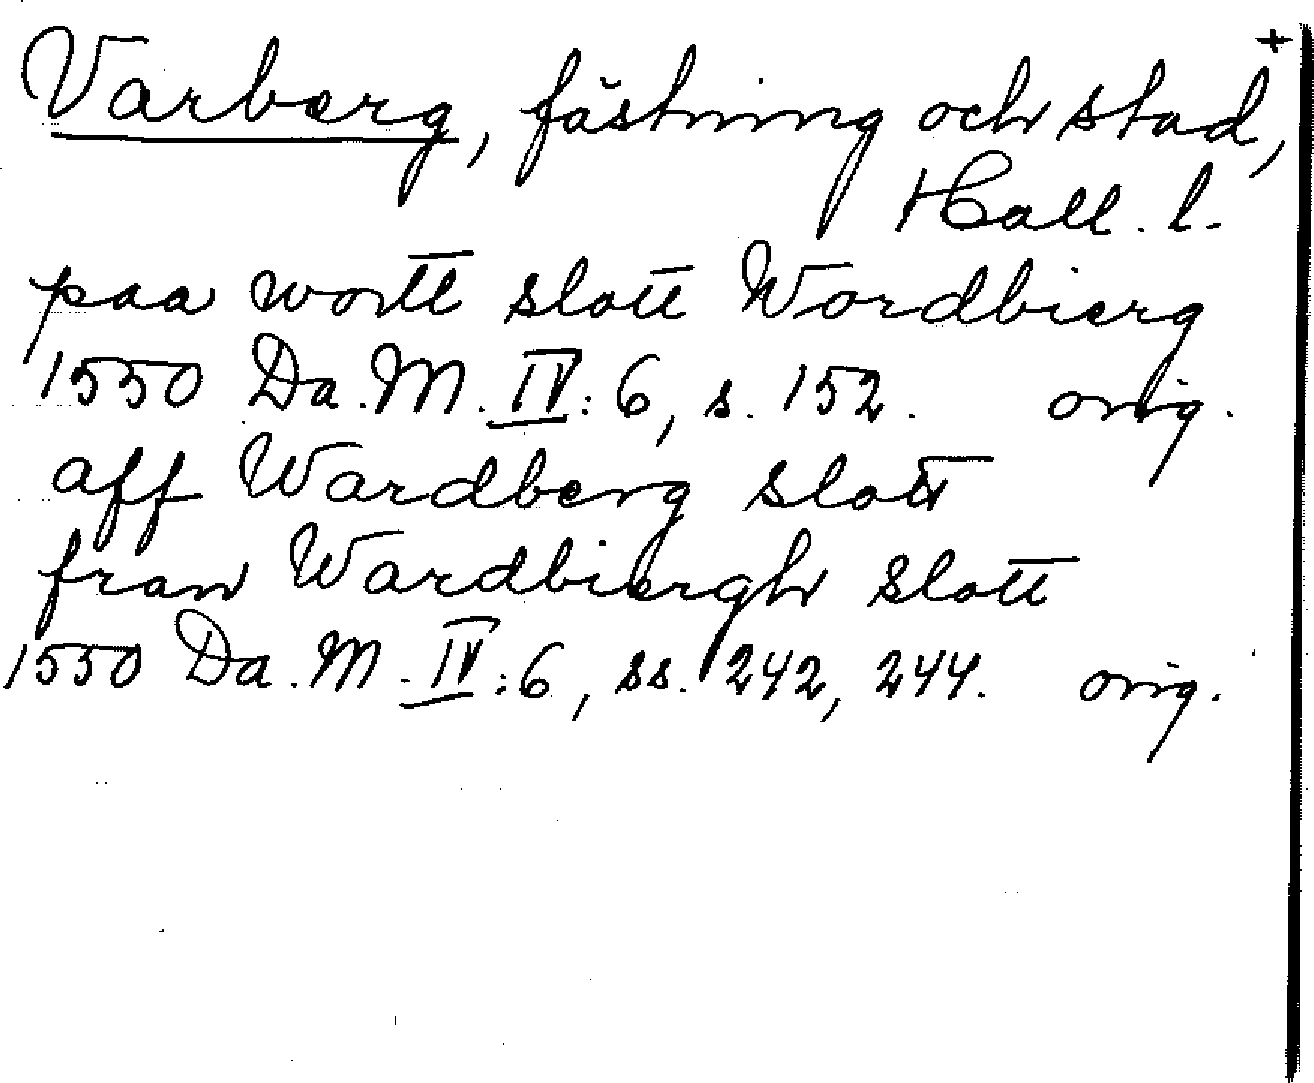 +
Varberg, fästning och stad,
Hall. l.
paa wortt slott Wordbierg
1550 Da. M. IV: 6, s. 152. orig.
aff Wardberg slott
fran Wardbiergh slott
1550 Da. M. IV: 6, ss. 242, 244. orig.